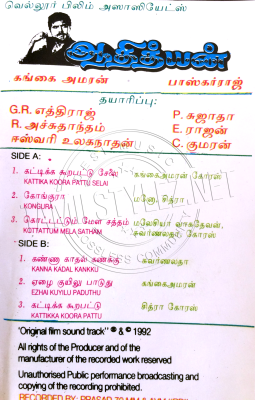 வெல்லூர் பிலிம் அஸாஸியேட்ஸ்
ஆதித்யன்
கங்கை அமரன் பாஸ்கர்ராஜ்
தயாரிப்பு:
G.R. எத்திராஜ் P. சுஜாதா
R. அச்சுதாந்தம் E. ராஜன்
ஈஸ்வரி உலகநாதன் C. குமரன்
SIDE A:
1. கட்டிக்க கூறபட்டு சேலை கங்கைஅமரன் கோரஸ்
KATTIKA KOORA PATTU SELAI
2. தோங்குரா மனோ, சித்ரா
KONGURA
3. கொட்டட்டும் மேள சத்தம் மலேசியா வாசுதேவன்,
KOTTATTUM MELA SATHAM சுவர்ணலதா கோரஸ்
SIDE B:
1. கண்ணு காதல் கணக்கு சுவர்ணலதா
KANNA KADAL KANKKU
2. ஏழை குயிலு பாடுது கங்கைஅமரன்
EZHAI KUYILU PADUTHU
3. கட்டிக்க கூறபட்டு சித்ரா கோரஸ்
KATTIKKA KOORA PATTU
"Original film sound track" ℗ & © 1992
All rights of the Producer and of the
manufacturer of the recorded work reserved
Unauthorised Public performance broadcasting and
copying of the recording prohibited.
RECORDED BY: PRASAD 70 MM &